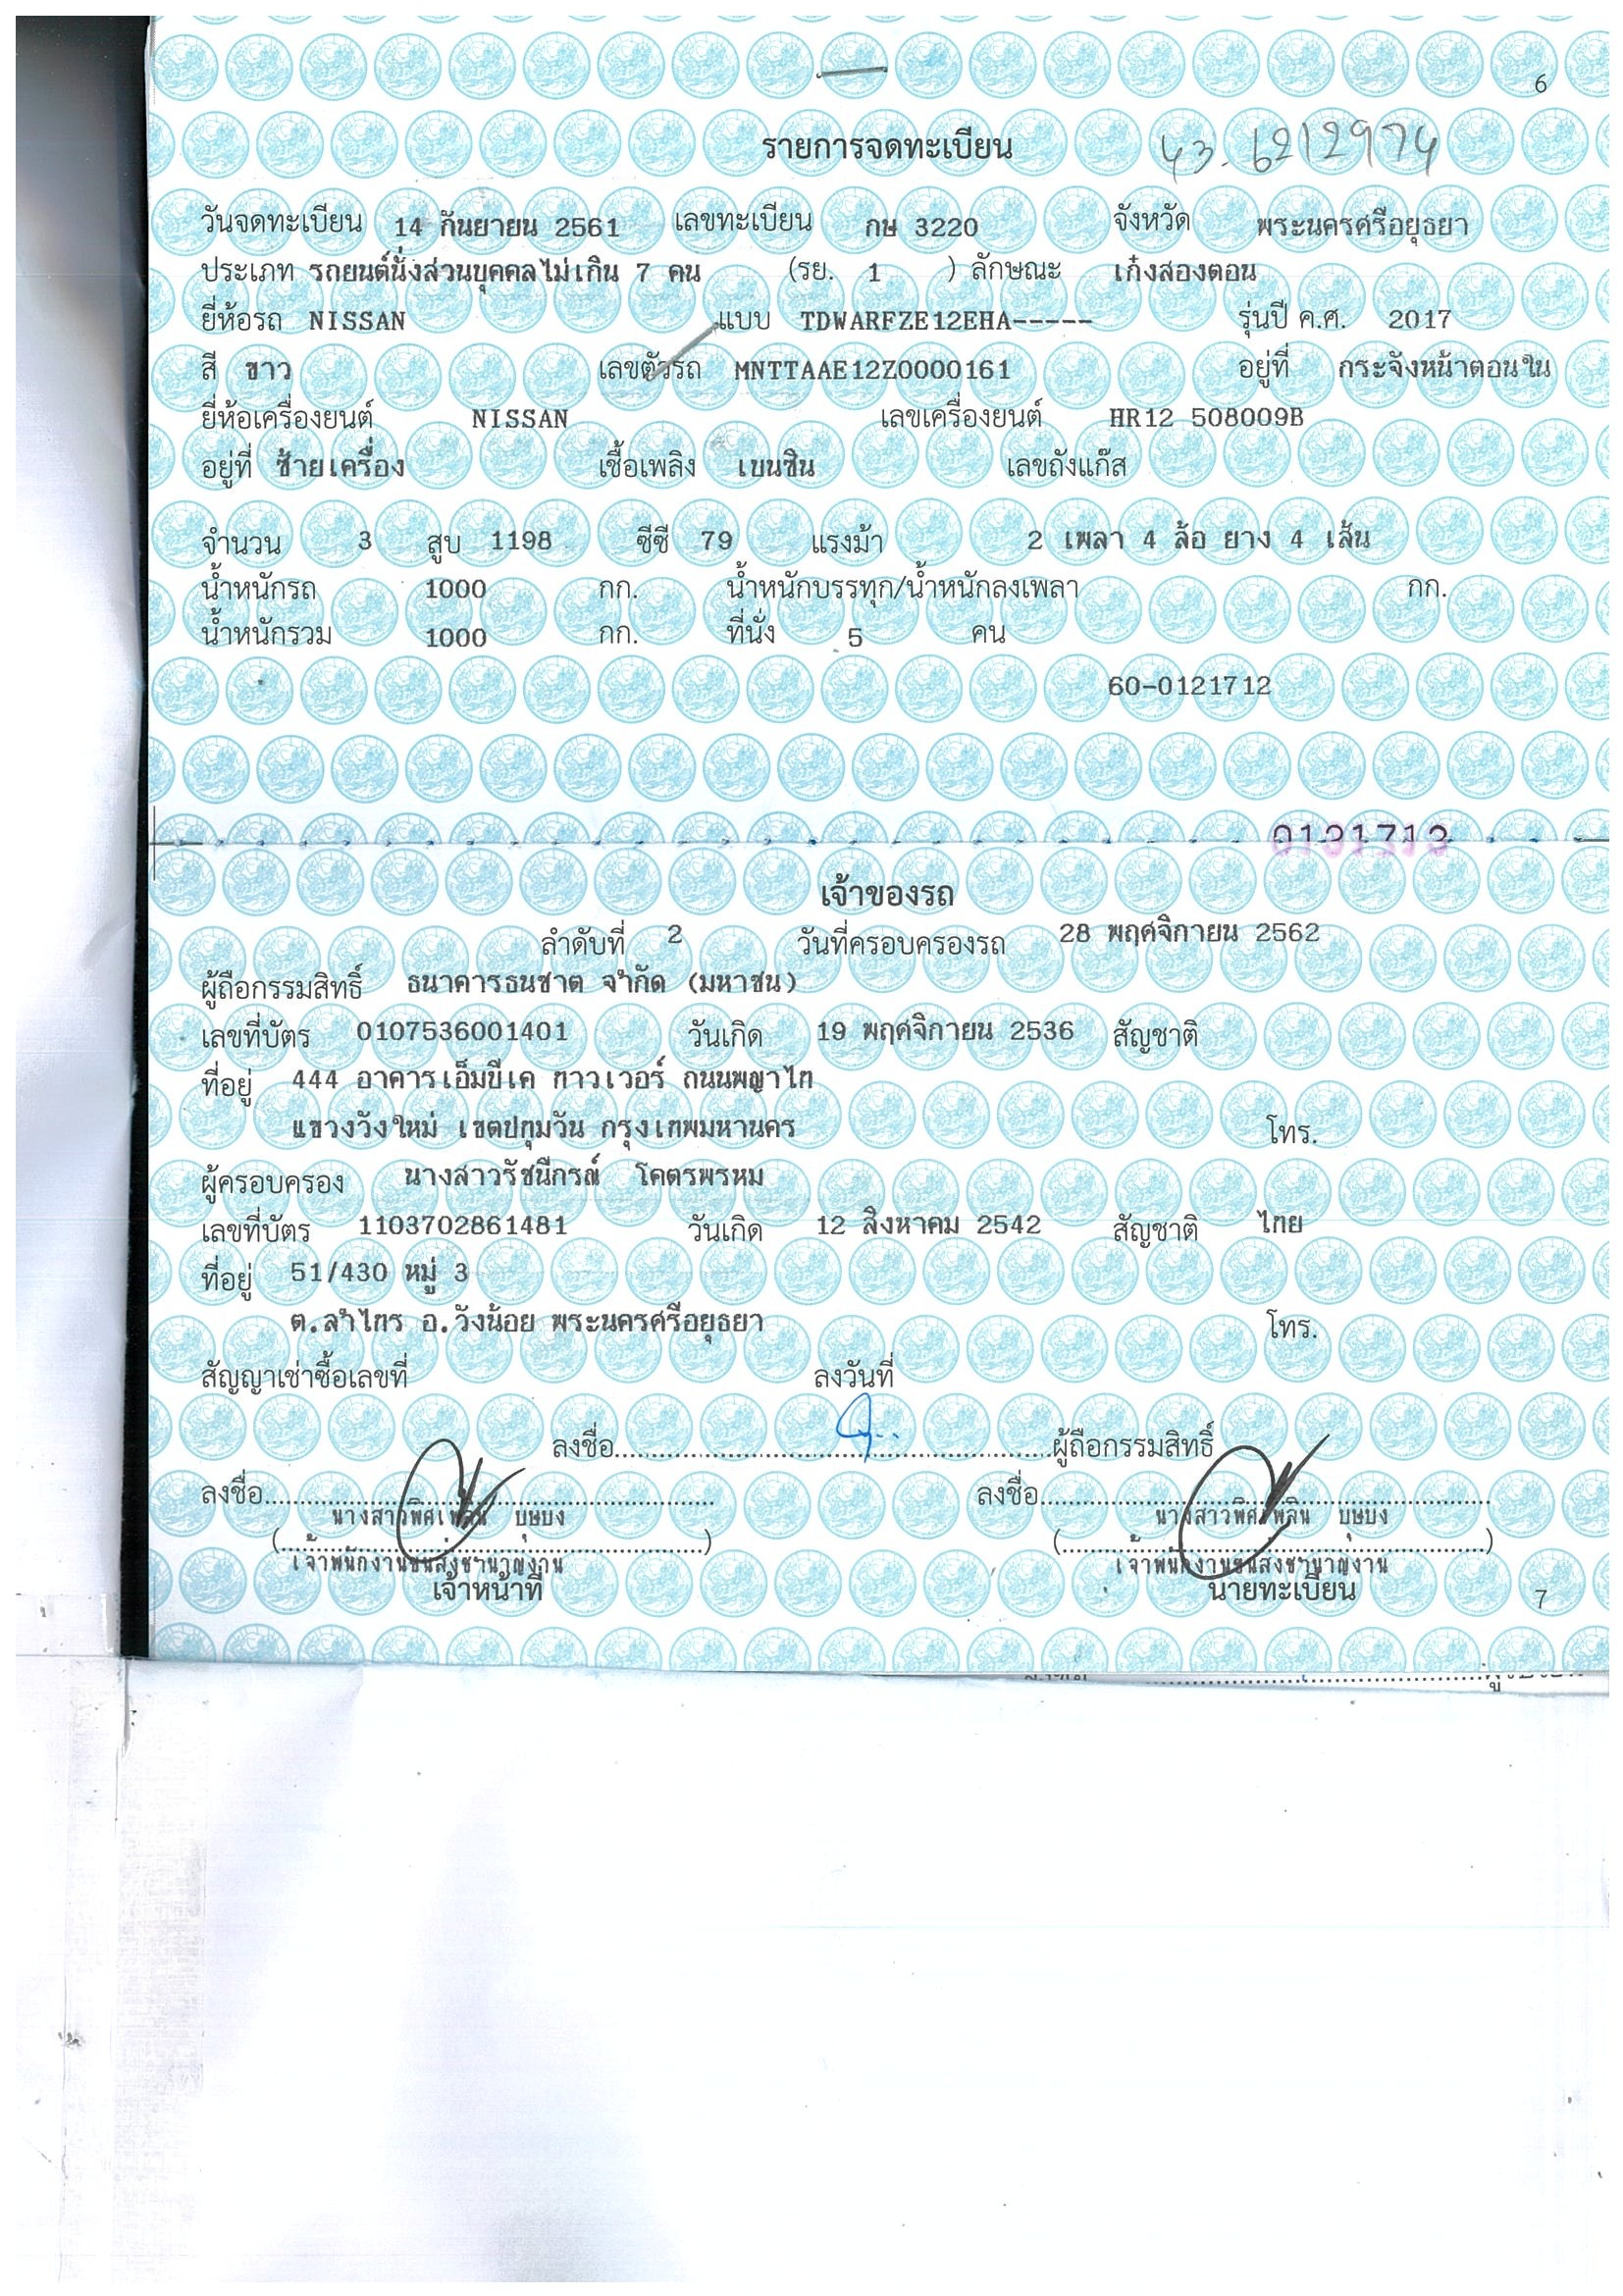 6
รายการจดทะเบียน 43-6212974
วันจดทะเบียน 14 กันยายน 2561 เลขทะเบียน กษ 3220 จังหวัด พระนครศรีอยุธยา
ประเภท รถยนต์นั่งส่วนบุคคลไม่เกิน 7 คน (รย. 1 ) ลักษณะ เก๋งสองตอน
ยี่ห้อรถ NISSAN แบบ TDWARFZE12EHA----- รุ่นปี ค.ศ. 2017
สี ขาว เลขตัวรถ MNTTAAE12Z0000161 อยู่ที่ กระจังหน้าตอนใน
ยี่ห้อเครื่องยนต์ NISSAN เลขเครื่องยนต์ HR12 508009B
อยู่ที่ ซ้ายเครื่อง เชื้อเพลิง เบนซิน เลขถังแก๊ส
จำนวน 3 สูบ 1198 ซีซี 79 แรงม้า 2 เพลา 4 ล้อ ยาง 4 เส้น
น้ำหนักรถ 1000 กก. น้ำหนักบรรทุก/น้ำหนักลงเพลา กก.
น้ำหนักรวม 1000 กก. ที่นั่ง 5 คน
60-0121712
เจ้าของรถ
ลำดับที่ 2 วันที่ครอบครองรถ 28 พฤศจิกายน 2562
ผู้ถือกรรมสิทธิ์ ธนาคารธนชาต จำกัด (มหาชน)
เลขที่บัตร 0107536001401 วันเกิด 19 พฤศจิกายน 2536 สัญชาติ
ที่อยู่ 444 อาคารเอ็มบีเค ทาวเวอร์ ถนนพญาไท
แขวงวังใหม่ เขตปทุมวัน กรุงเทพมหานคร โทร.
ผู้ครอบครอง นางสาวรัชนีกรณ์ โคตรพรหม
เลขที่บัตร 1103702861481 วันเกิด 12 สิงหาคม 2542 สัญชาติ ไทย
ที่อยู่ 51/430 หมู่ 3
ต.ลำไทร อ.วังน้อย พระนครศรีอยุธยา โทร.
สัญญาเช่าซื้อเลขที่ ลงวันที่
ลงชื่อ ผู้ถือกรรมสิทธิ์
ลงชื่อ ลงชื่อ
นางสาวพิศเพลิน บุษบง นางสาวพิศเพลิน บุษบง
เจ้าพนักงานขนส่งชำนาญงาน เจ้าพนักงานขนส่งชำนาญงาน
เจ้าหน้าที่ นายทะเบียน 7